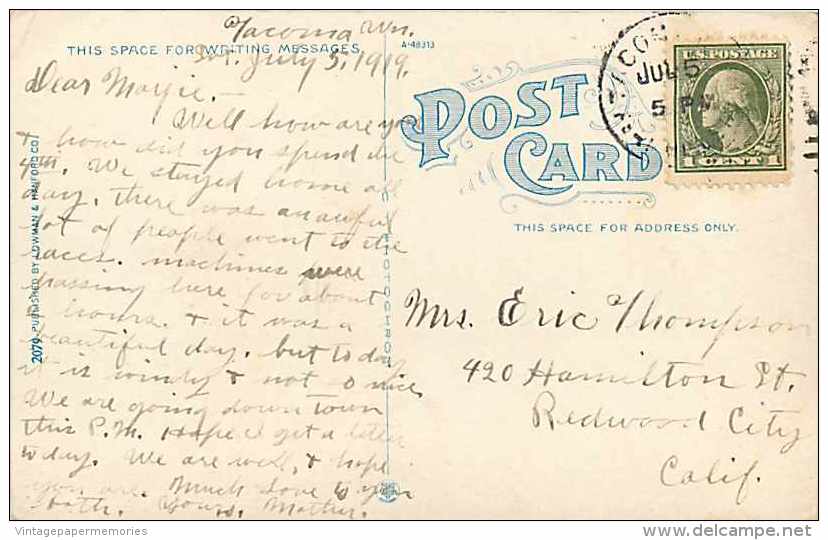 Tacoma Wn.
THIS SPACE FOR WRITING MESSAGES.
A-48313
Sat. July 5, 1919.
Dear Marjie, —
Well how are you
& how did you spend the
4th. We stayed home all
day, there was an awful
lot of people went to the
races. machines were
passing here for about
hours. & it was a
beautiful day. but to day
it is windy & not so nice
We are going down town
this P.M. Hope I get a letter
to day. We are well, & hope
you are. Much Love to you
both. Yours, Mother.
2079. PUBLISHED BY LOWMAN & HANFORD CO.
PHOTOCHROM
POST
CARD
THIS SPACE FOR ADDRESS ONLY.
TACOMA
JUL 5
5 PM
U.S. POSTAGE
1 CENT 1
Mrs. Eric Thompson
420 Hamilton St.
Redwood City
Calif.
Vintagepapermemories
delcampe.net